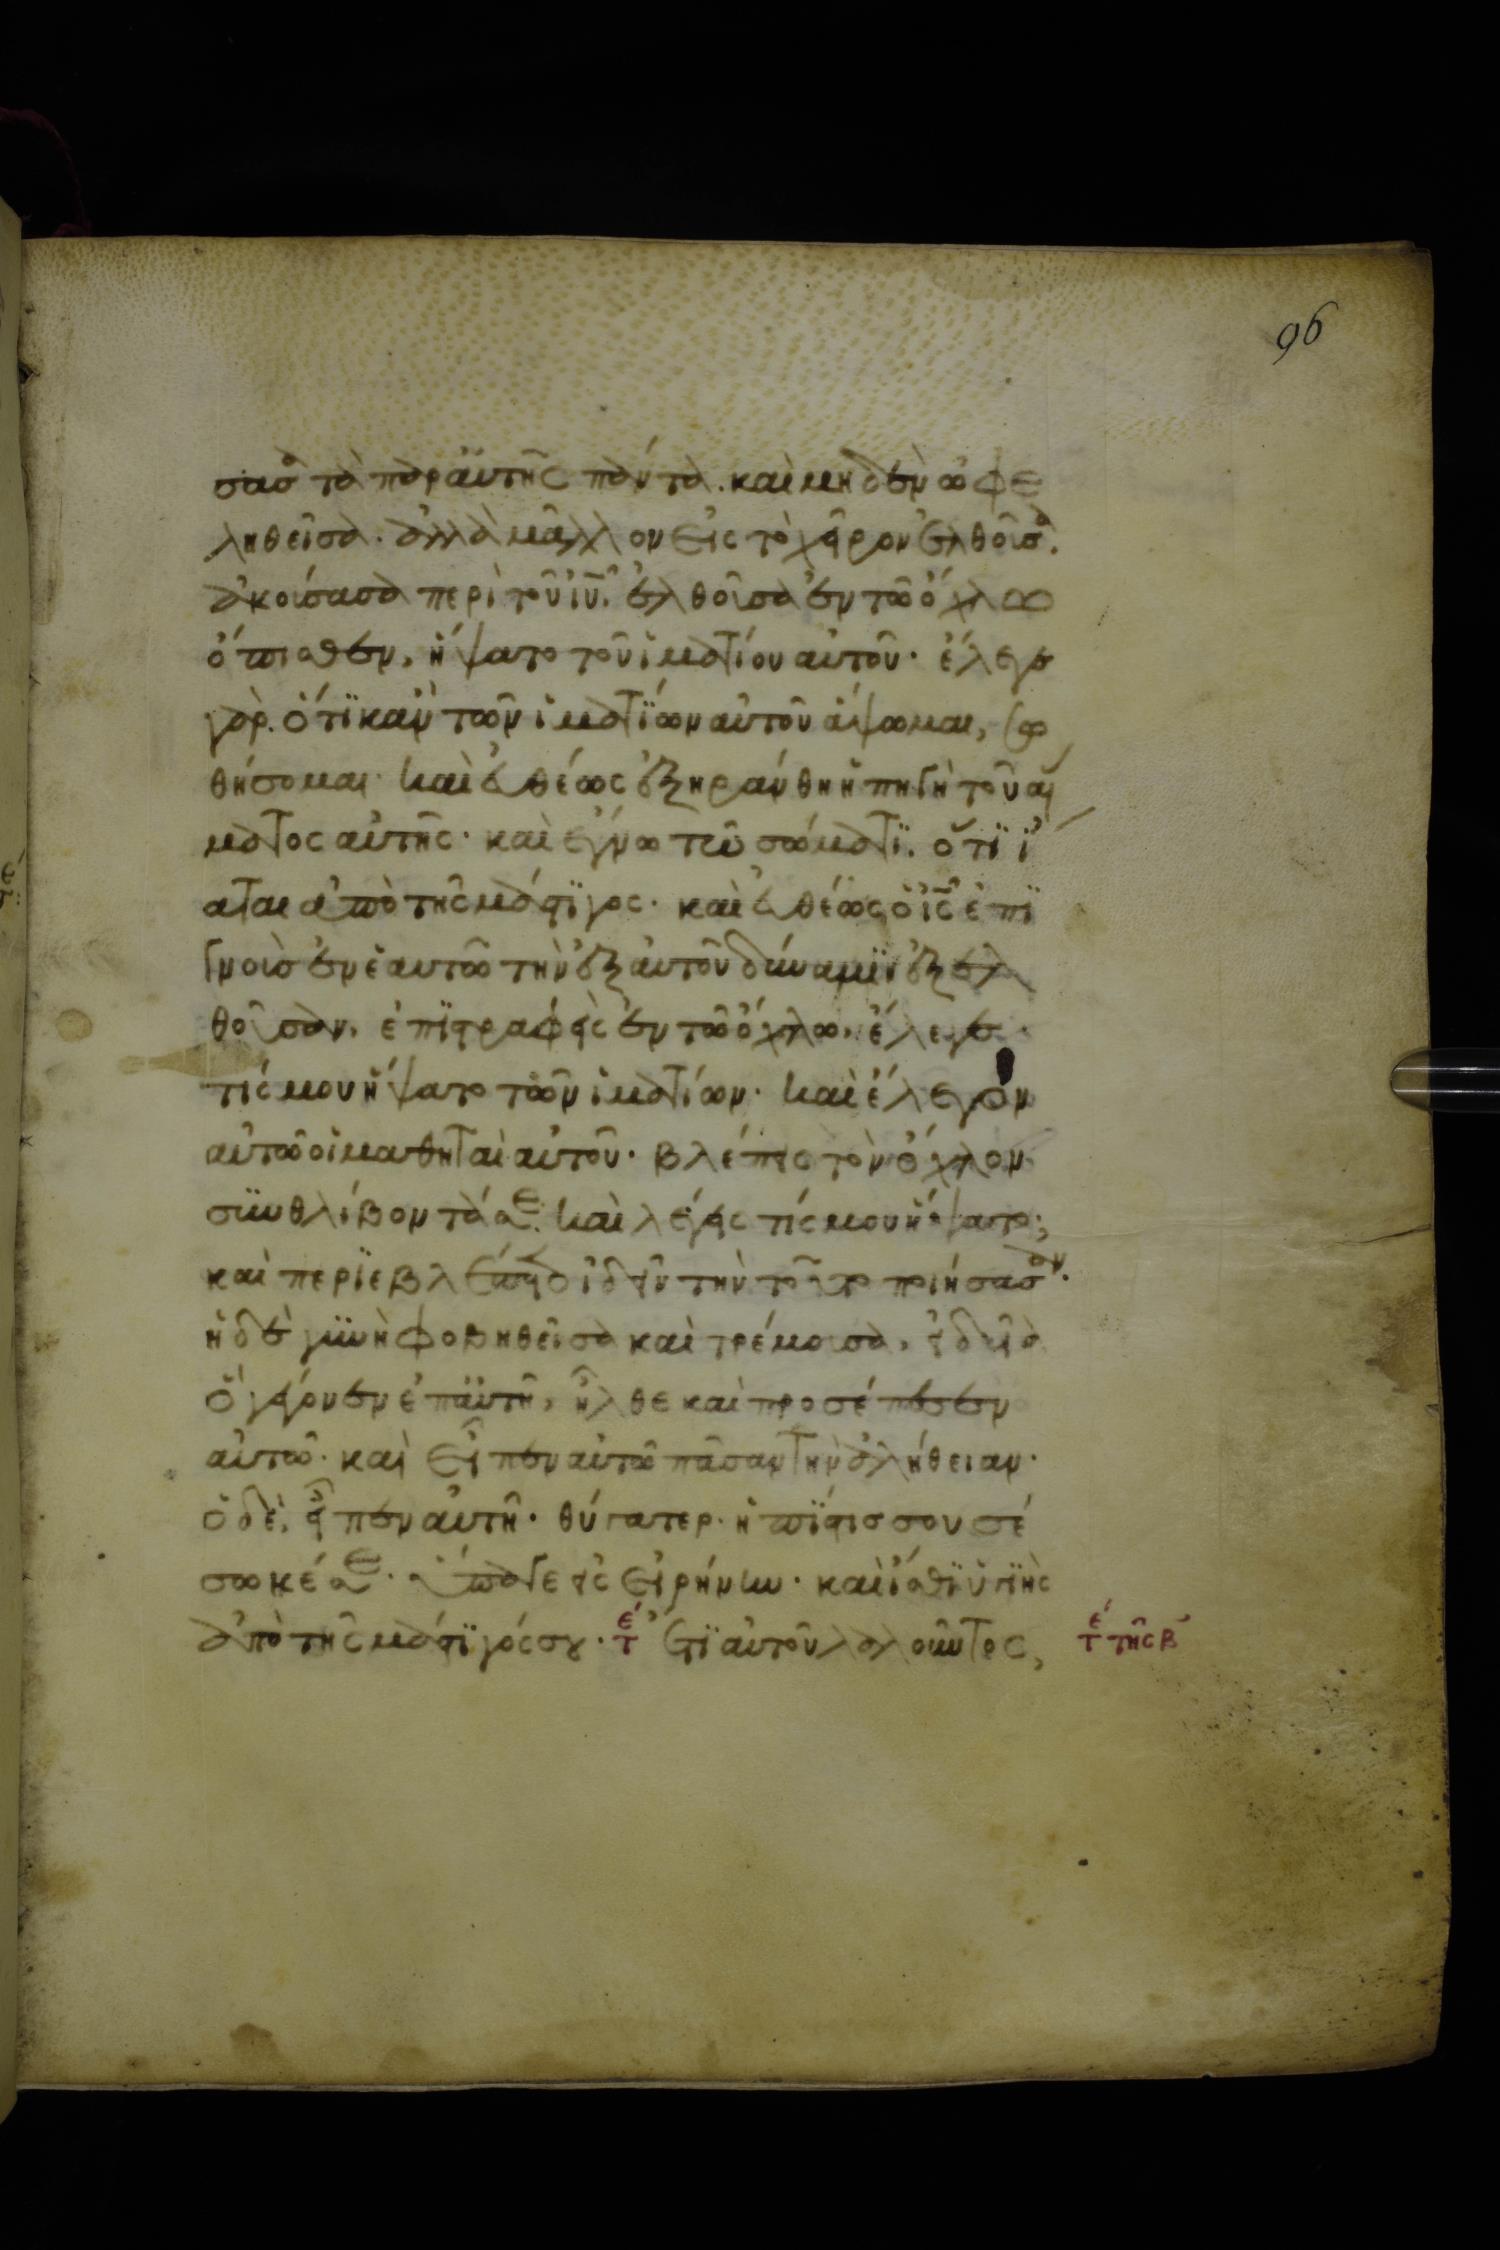 96
σασα τὰ παρ αὐτῆς πάντα. καὶ μηδὲν ὠφε
ληθεῖσα. ἀλλὰ μᾶλλον εἰς τὸ χεῖρον ἐλθοῦσα.
ἀκούσασα περὶ τοῦ ἰῦ. ἐλθοῦσα ἐν τῶ ὄχλω
ὄπισθεν, ἥψατο τοῦ ἱματίου αὐτοῦ· ἔλεγε
γὰρ. ὅτι κἂν τῶν ἱματίων αὐτοῦ ἅψωμαι, σω
θήσομαι· καὶ εὐθέως ἐξηράνθη ἡ πηγὴ τοῦ αἵ
ματος αὐτῆς· καὶ ἔγνω τῶ σώματι. ὅτι ἴ
αται ἀπὸ τῆς μάστιγος· καὶ εὐθέως ὁ ἰς ἐπι
γνοὺς ἐν ἑαυτῶ τὴν ἐξ αὐτοῦ δύναμιν ἐξελ
θοῦσαν, ἐπιστραφεὶς ἐν τῶ ὄχλω, ἔλεγε·
τίς μου ἥψατο τῶν ἱματίων· καὶ ἔλεγον
αὐτῶ οἱ μαθηταὶ αὐτοῦ· βλέπεις τὸν ὄχλον
συνθλίβοντά σε. καὶ λέγεις τίς μου ἥψατο;
καὶ περιεβλέπετο ἰδεῖν τὴν τοῦτο ποιήσασαν.
ἡ δὲ γυνὴ φοβηθεῖσα καὶ τρέμουσα, εἰδυῖα
ὃ γέγονεν ἐπ αὐτῆ, ἦλθε καὶ προσέπεσεν
αὐτῶ· καὶ εἶπεν αὐτῶ πᾶσαν τὴν ἀλήθειαν·
ὁ δὲ, εἶπεν αὐτῆ· θύγατερ· ἡ πίστις σου σέ
σωκέ σε· ὕπαγε εἰς εἰρήνην· καὶ ἴσθι ὑγιὴς
ἀπὸ τῆς μάστιγός σου· τέ ἔτι αὐτοῦ λαλοῦντος, τέ τῆς β